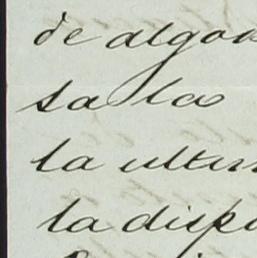 de algo
sa las
la ulti
la disp